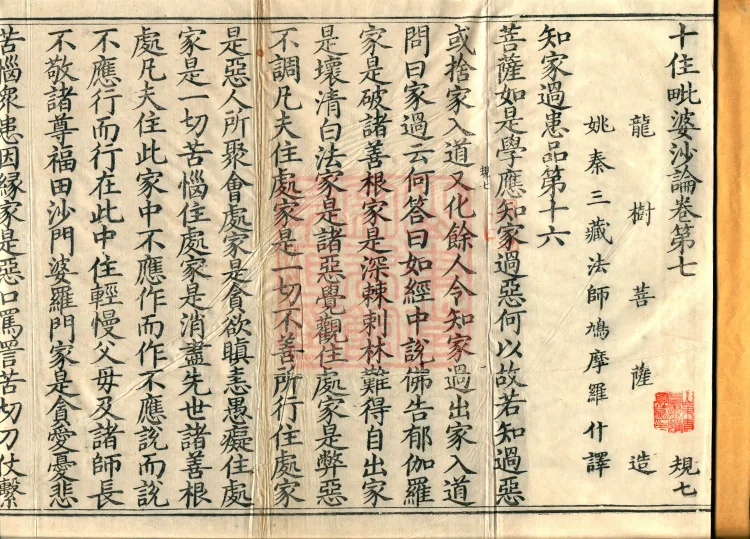 十住毗婆沙論卷第七 規七
龍樹菩薩造
姚秦三藏法師鳩摩羅什譯
知家過患品第十六
菩薩如是學應知家過惡何以故若知過惡
或捨家入道又化餘人令知家過出家入道
問曰家過云何答曰如經中說佛告郁伽羅
家是破諸善根家是深棘刺林難得自出家
是壞清白法家是諸惡覺觀住處家是弊惡
不調凡夫住處家是一切不善所行住處家
是惡人所聚會處家是貪欲瞋恚愚癡住處
家是一切苦惱住處家是消盡先世諸善根
處凡夫住此家中不應作而作不應說而說
不應行而行在此中住輕慢父母及諸師長
不敬諸尊福田沙門婆羅門家是貪愛憂悲
苦惱眾患因緣家是惡口罵詈苦切刀仗繫
規七